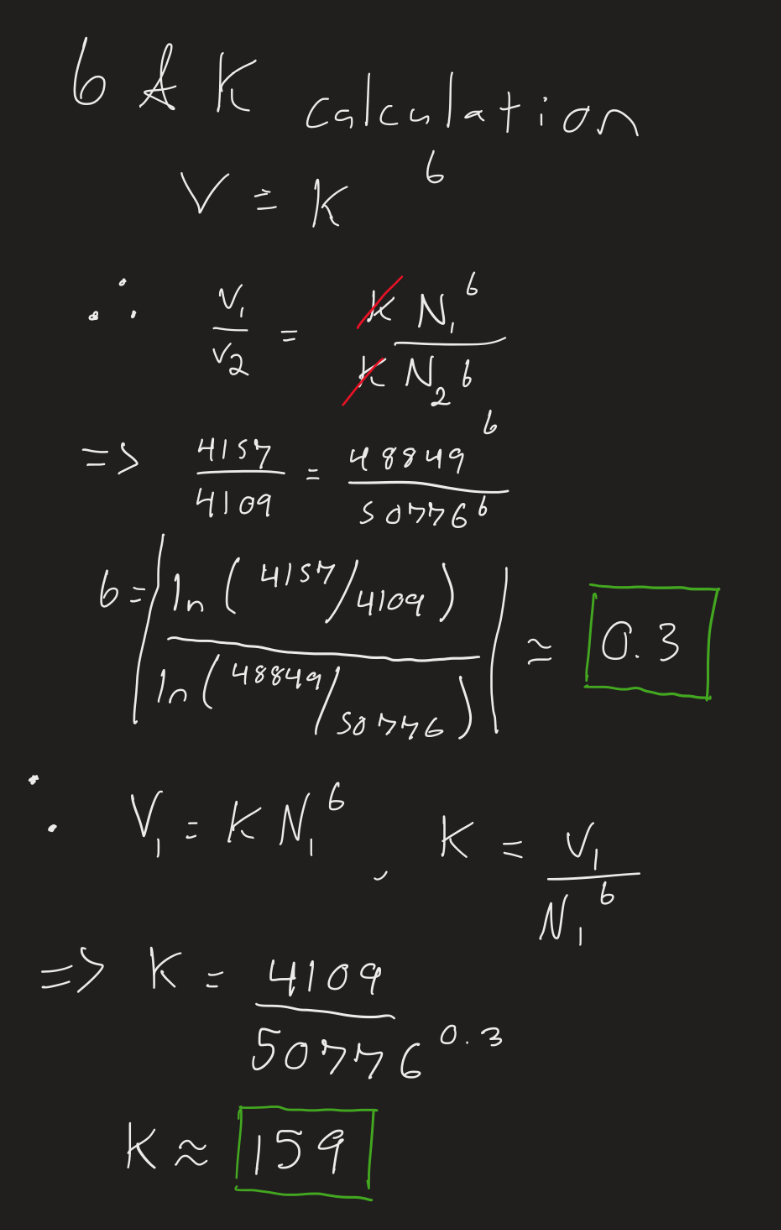 b & K calculation
V = K ^b
∴ V₁/V₂ = K N₁^b / K N₂^b
=> 4157/4109 = 48849^b / 50776^b
b = | ln(4157/4109) / ln(48849/50776) | ≈ 0.3
∴ V₁ = K N₁^b , K = V₁ / N₁^b
=> K = 4109 / 50776^0.3
K ≈ 159